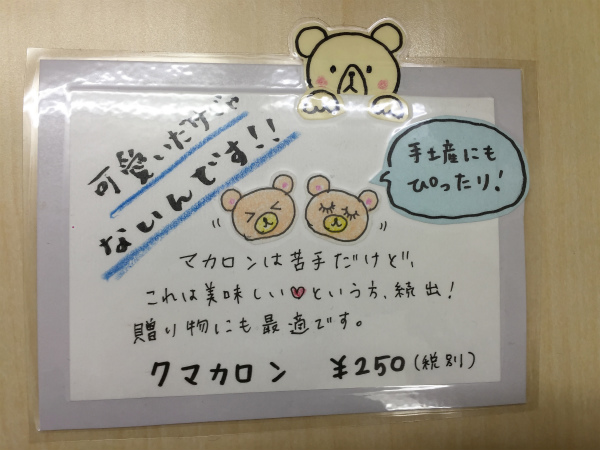 可愛いだけじゃ
ないんです!!
手土産にも
ぴったり!
マカロンは苦手だけど、
これは美味しい♥という方、続出!
贈り物にも最適です。
クマカロン ¥250(税別)